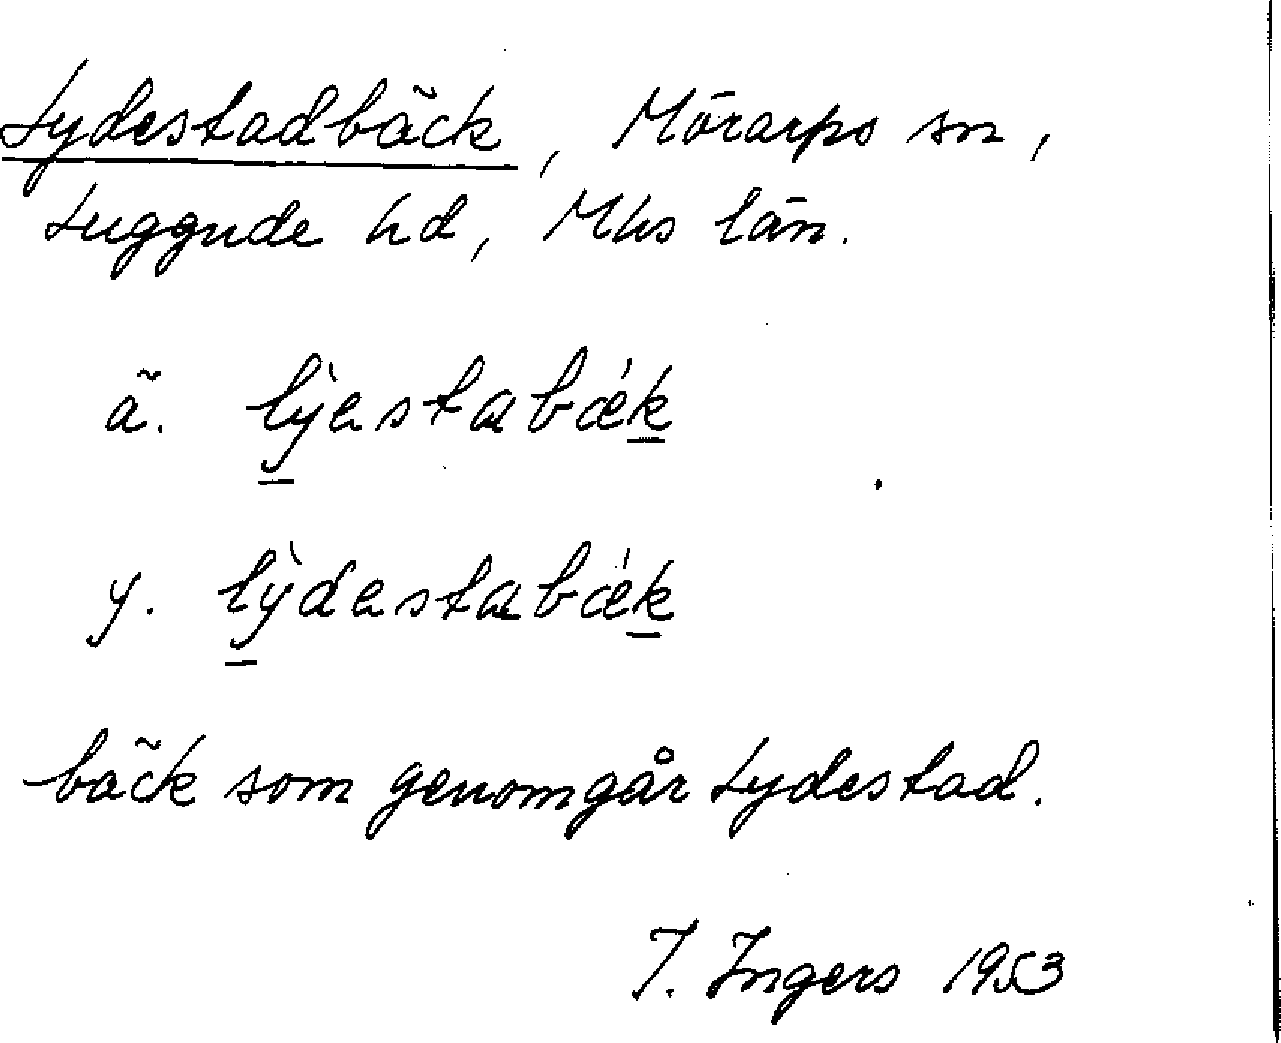 Lydestadbäck, Mörarps sn,
Luggude hd, Mhs län.
ä. lỳestabǽk
y. lỳdestabǽk
bäck som genomgår Lydestad.
I. Ingers 1953